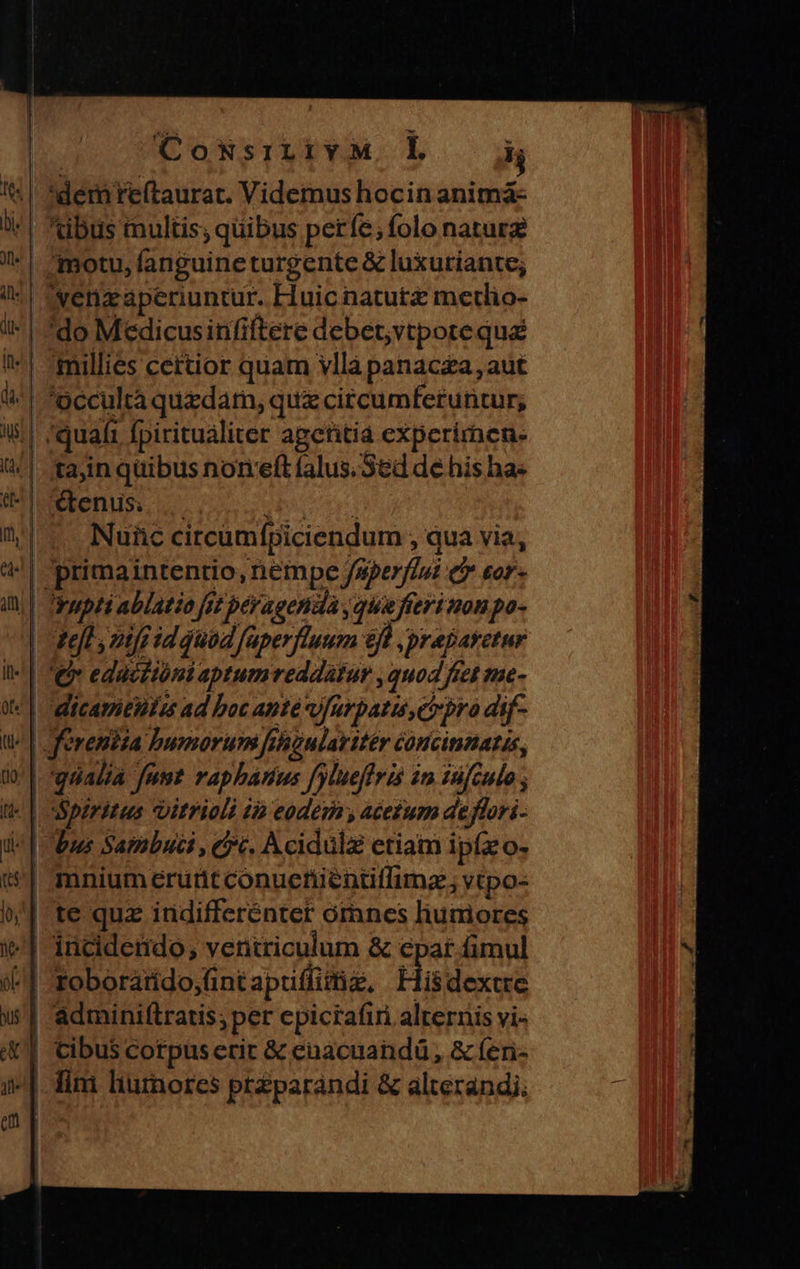 CONSILIVM I. ij
dem reſtaurat. Videmus hoc in animá-
tibus multis, quibus per ſe, ſolo naturæ
motu, ſanguine turgente & luxuriante,
venæ aperiuntur. Huic naturæ metho-
do Medicus inſiſtere debet, vtpote quæ
millies certior quam vlla panacæa, aut
occulta quædam, quæ circumferuntur,
quaſi ſpiritualiter agentia experimen-
ta, in quibus non eſt ſalus. Sed de his ha-
ctenus.
Nunc circumſpiciendum, qua via,
prima intentio, nempe ſuperflui & cor-
rupti ablatio ſit peragenda, quæ fieri non po-
teſt, niſi id quod ſuperfluum eſt, præparetur
& eductioni aptum reddatur, quod fiet me-
dicamentis ad hoc ante vſurpatis, & pro dif-
ferentia humorum ſingulariter concinnatis,
qualia ſunt raphanus ſylueſtris in iuſculo,
Spiritus vitrioli in eodem, acetum de flori-
bus Sambuci, &c. Acidulæ etiam ipſæ o-
mnium erunt conuenientiſſimæ, vtpo-
te quæ indifferenter omnes humores
incidendo, ventriculum & epar ſimul
roborando, ſint aptiſſimæ. His dextre
adminiſtratis, per epicraſin alternis vi-
cibus corpus erit & euacuandū, & ſen-
ſim humores præparandi & alterandi.